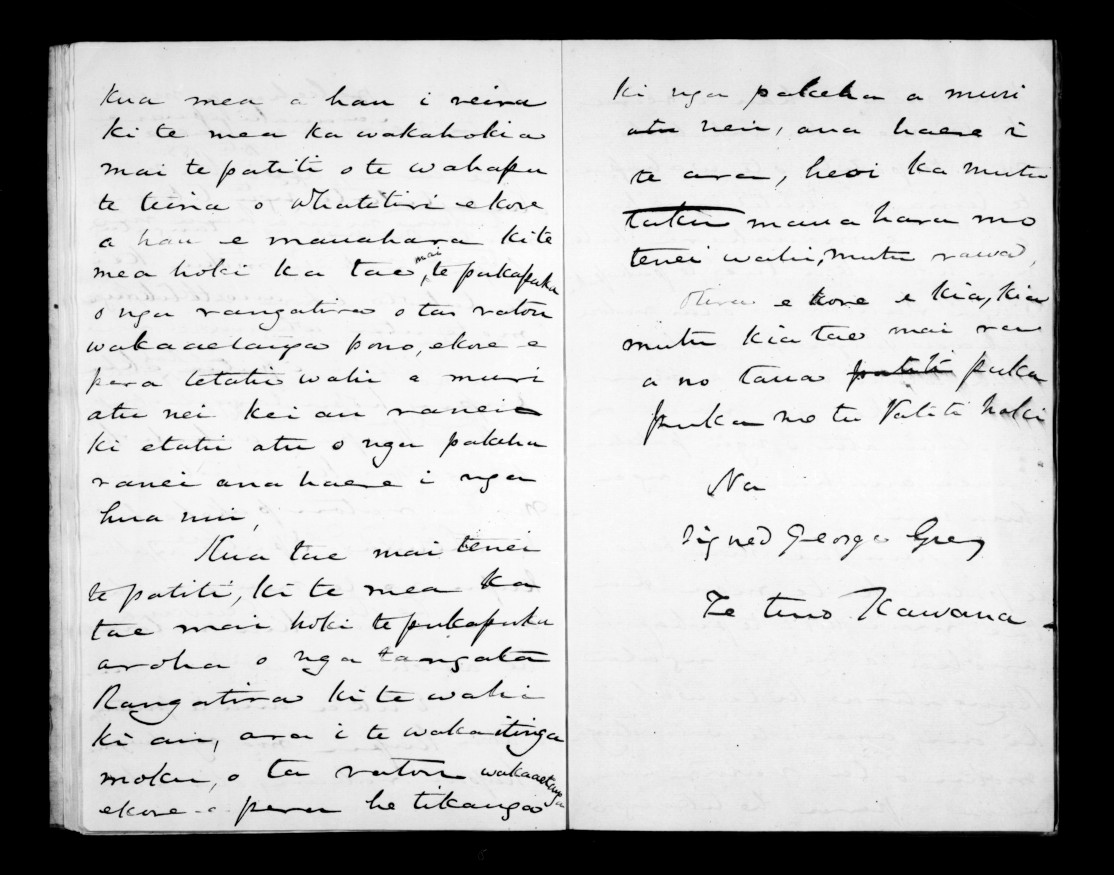 Kua mea a hau i reira
ki te mea ka wakahokia
mai te patiti o te wahapu
te teina o Whatitiri ekore
a hau e manahara ki te
mea hoki ka tae mai, te pukapuka
o nga rangatira o tas ratou
wakaaetanga pono, ekore e
pera tetatu wahi a muri
atu nei kei au ranei
ki etatu atu o nga pakeha
ranei ana haere i nga
hua nui,
Kua tae mai tenei
te patiti, ki te mea ka
tae mai hoki te pukapuka
aroha o nga tangata
Rangatira ki te wahi
ki au, ara i te wakaitinga
moku, o ta ratou wakaaetanga
ekore e pera he tikanga
ki nga pakeha a muri
atu nei, ana haere i
te ara, heoi ka mutu
taku manahara mo
tenei wahi, mutu rawa,
Otira e kore e kia, kia
mutu kia tae mai ra
a no taua patiti puka
puka no te Patiti hoki
Na
Signed George Grey
Te tino Kawana